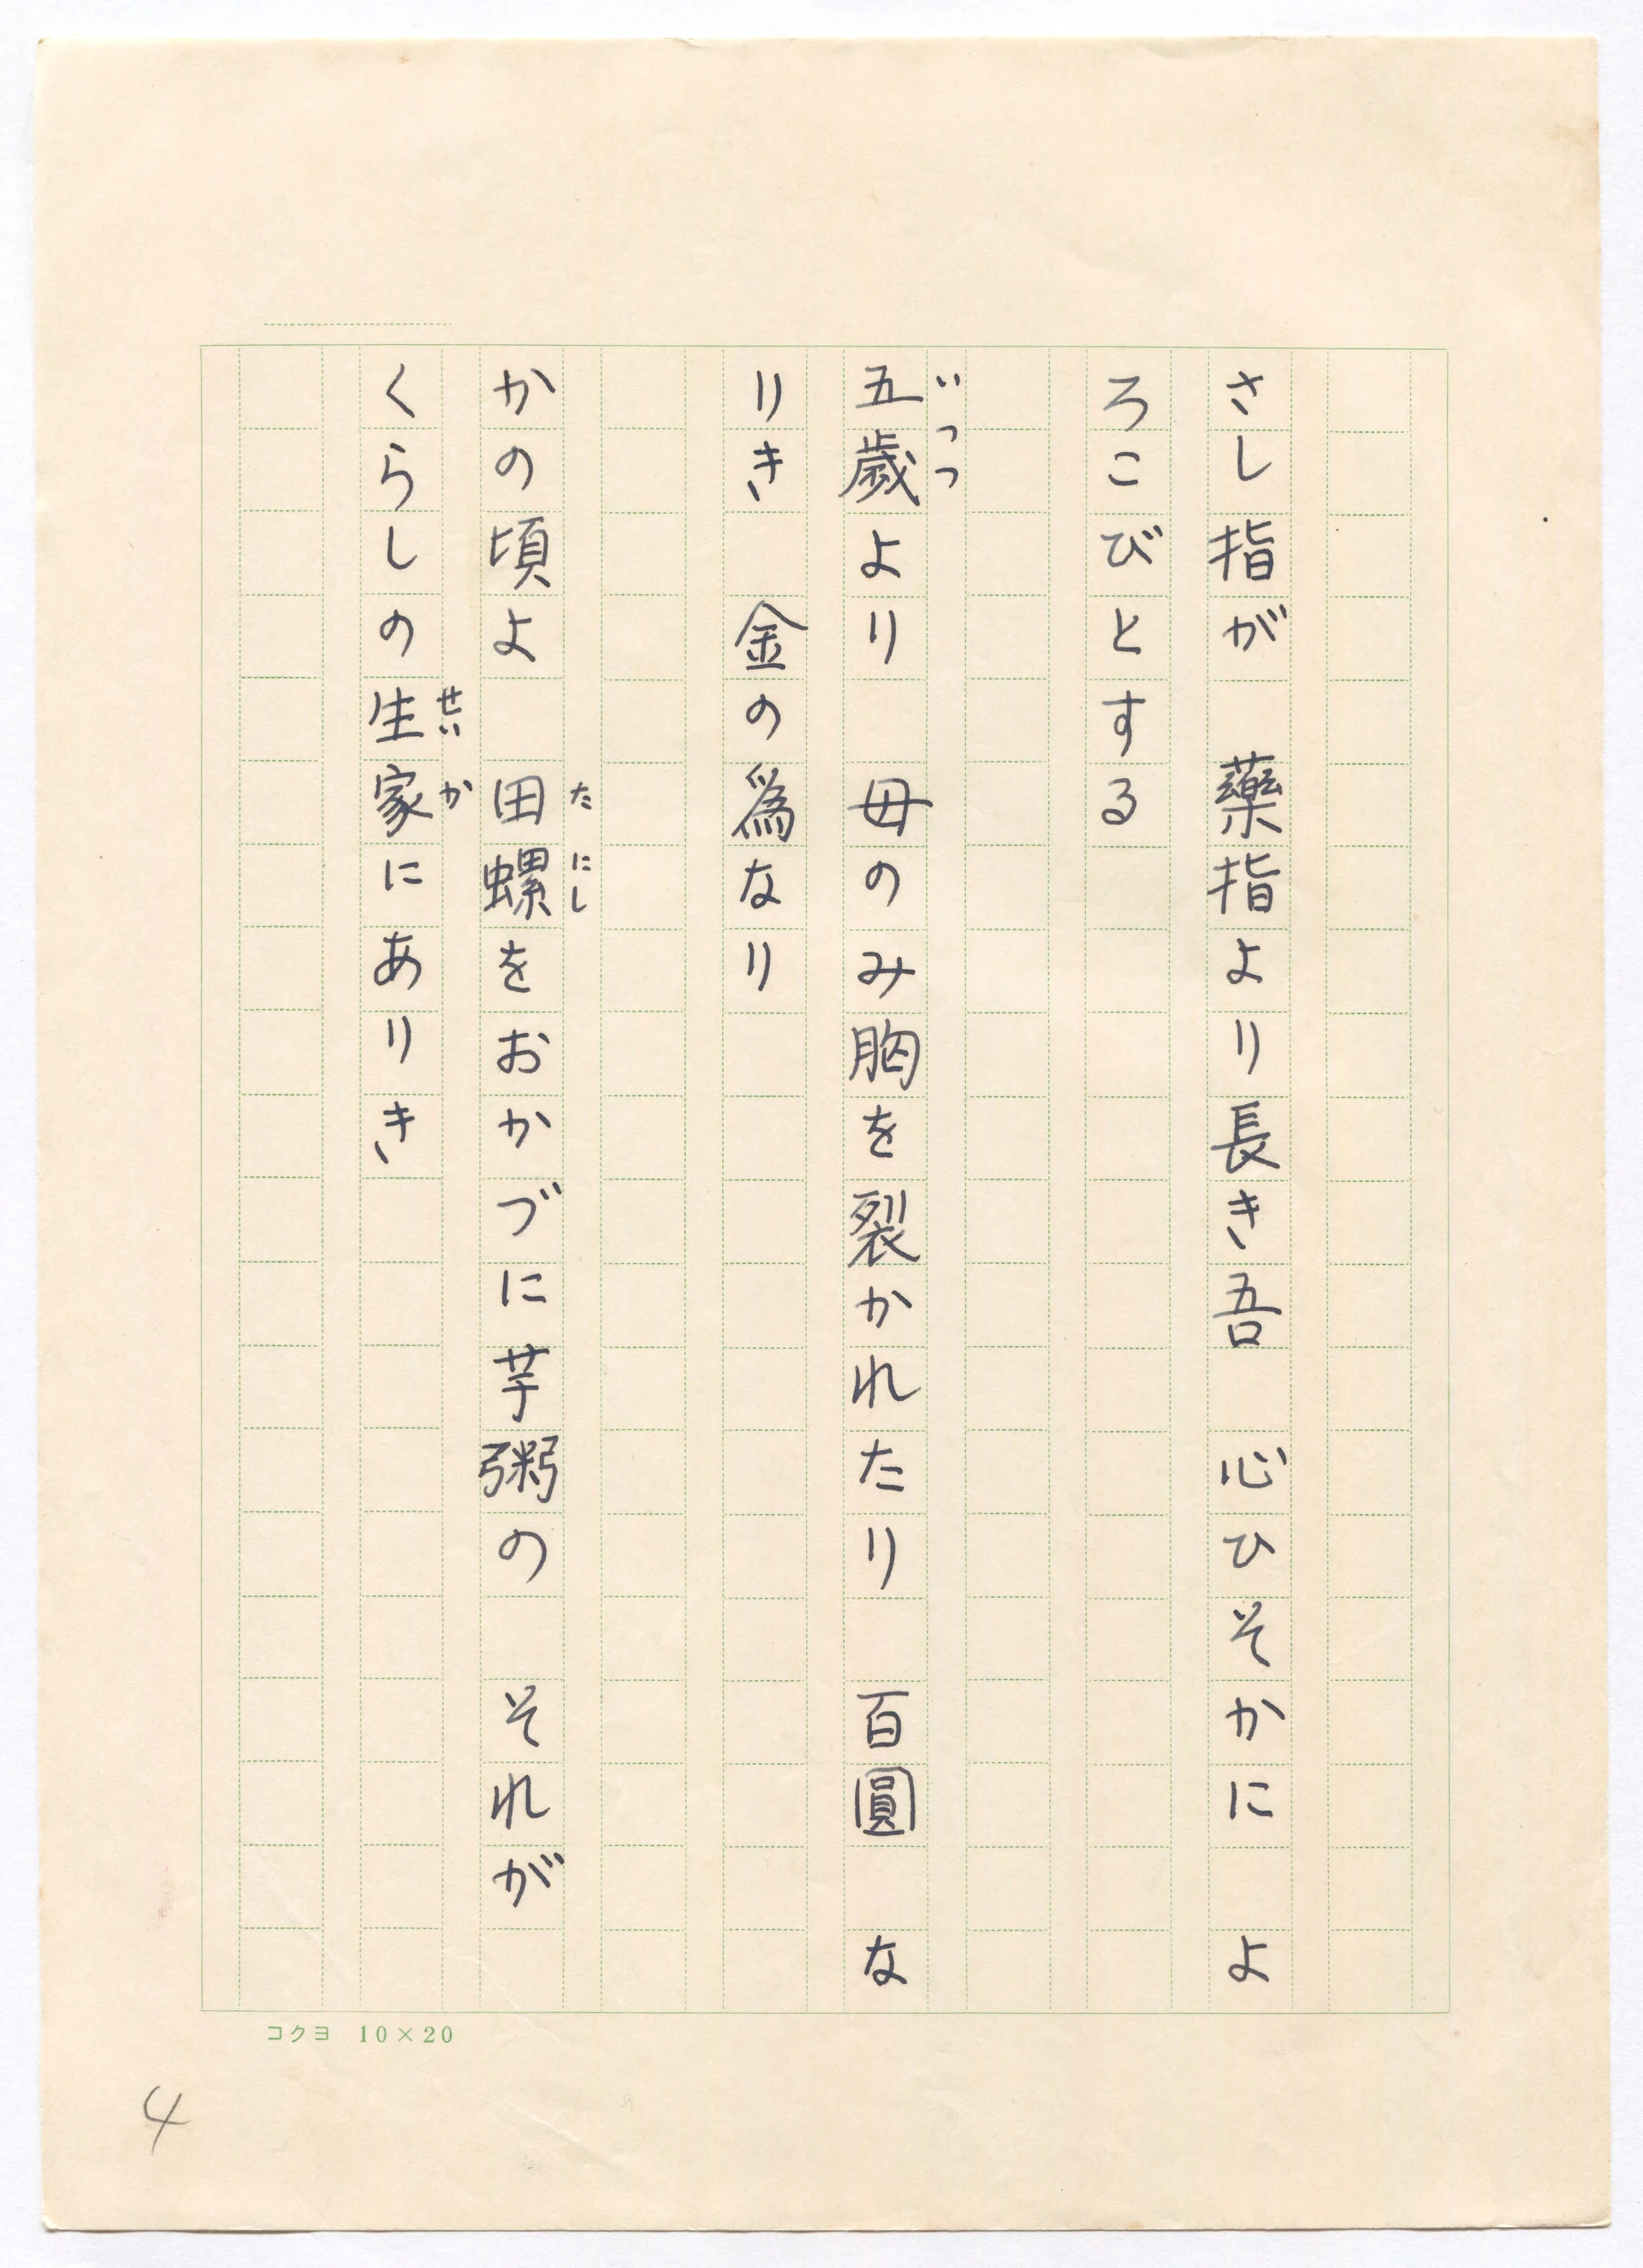 さし指が　藥指より長き吾　心ひそかに　よ
ろこびとする
五歲より　母のみ胸を裂かれたり　百圓　な
いつつ
りき　金の爲なり
かの頃よ　田螺をおかづに芋粥の　それが
たにし
くらしの生家にありき
せいか
コクヨ 10×20
4